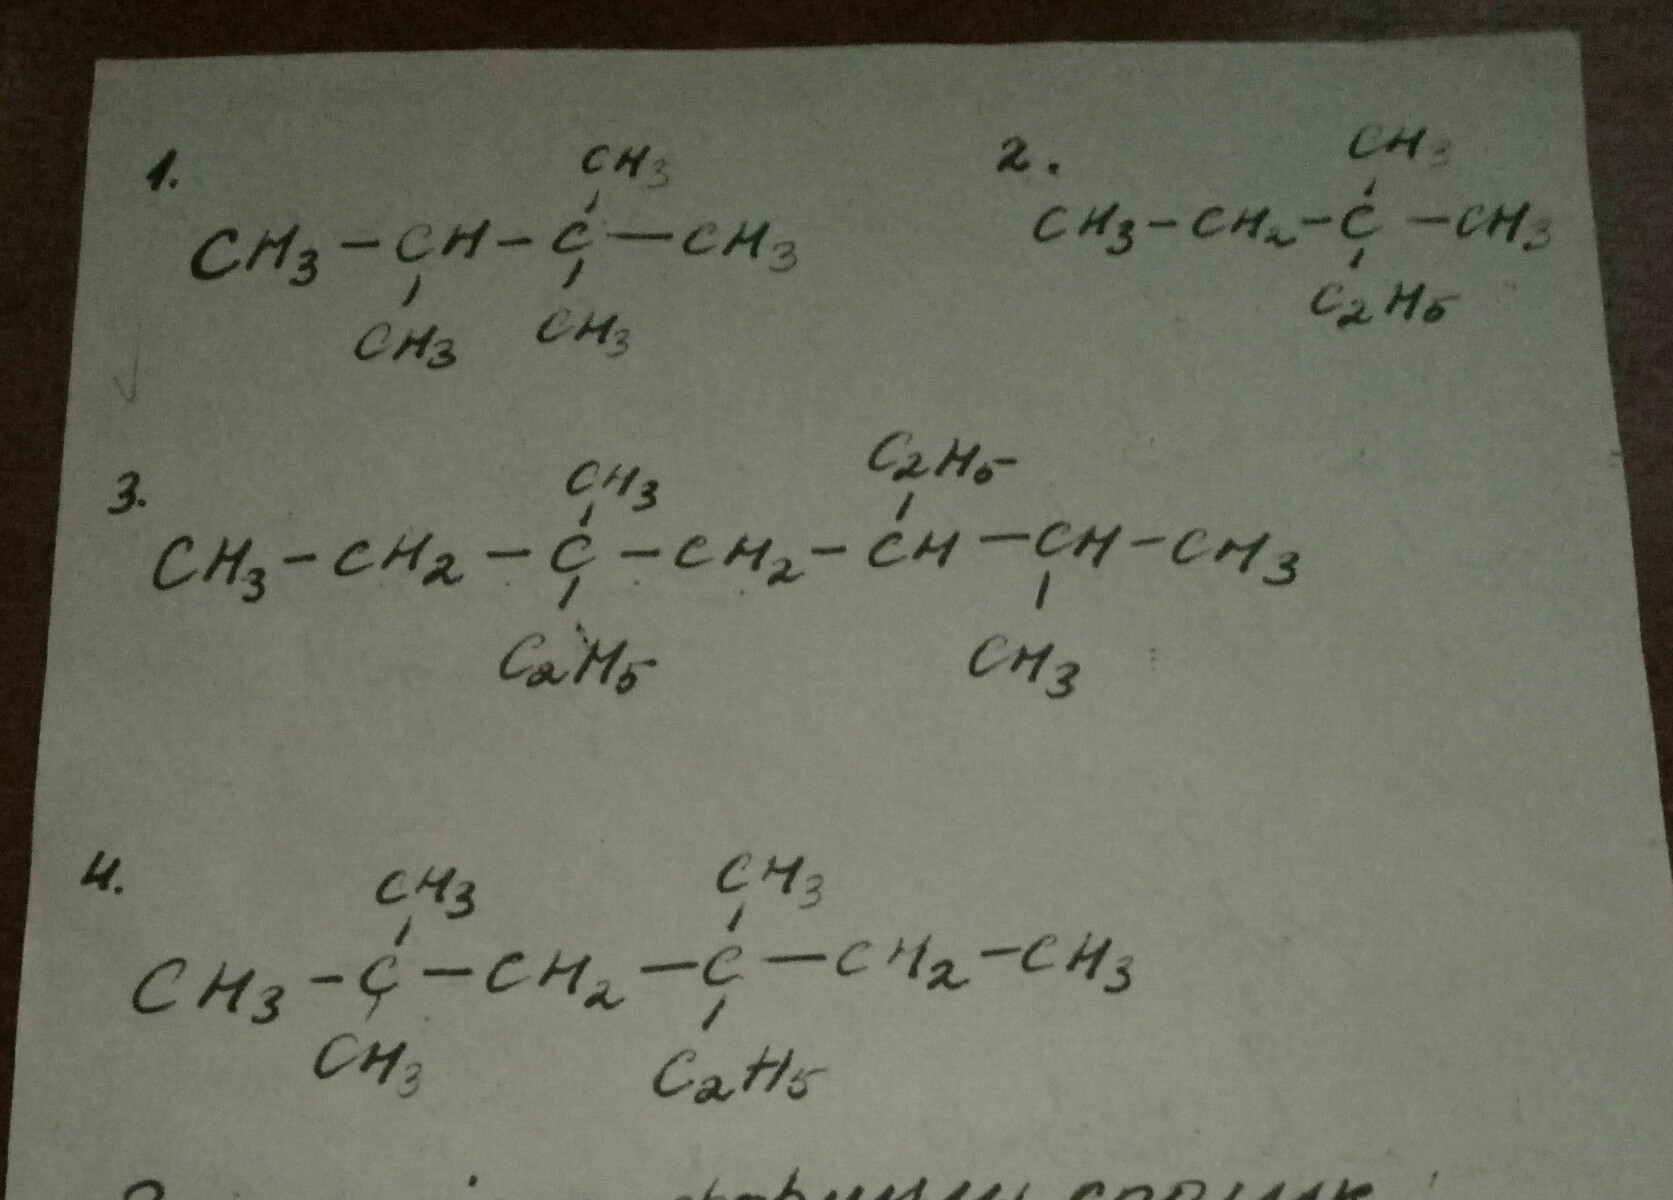 1.
CH3
CH3 - CH - C - CH3
CH3 CH3
2.
CH3
CH3 - CH2 - C - CH3
C2H5
3.
CH3 C2H5
CH3 - CH2 - C - CH2 - CH - CH - CH3
C2H5 CH3
4.
CH3 CH3
CH3 - C - CH2 - C - CH2 - CH3
CH3 C2H5